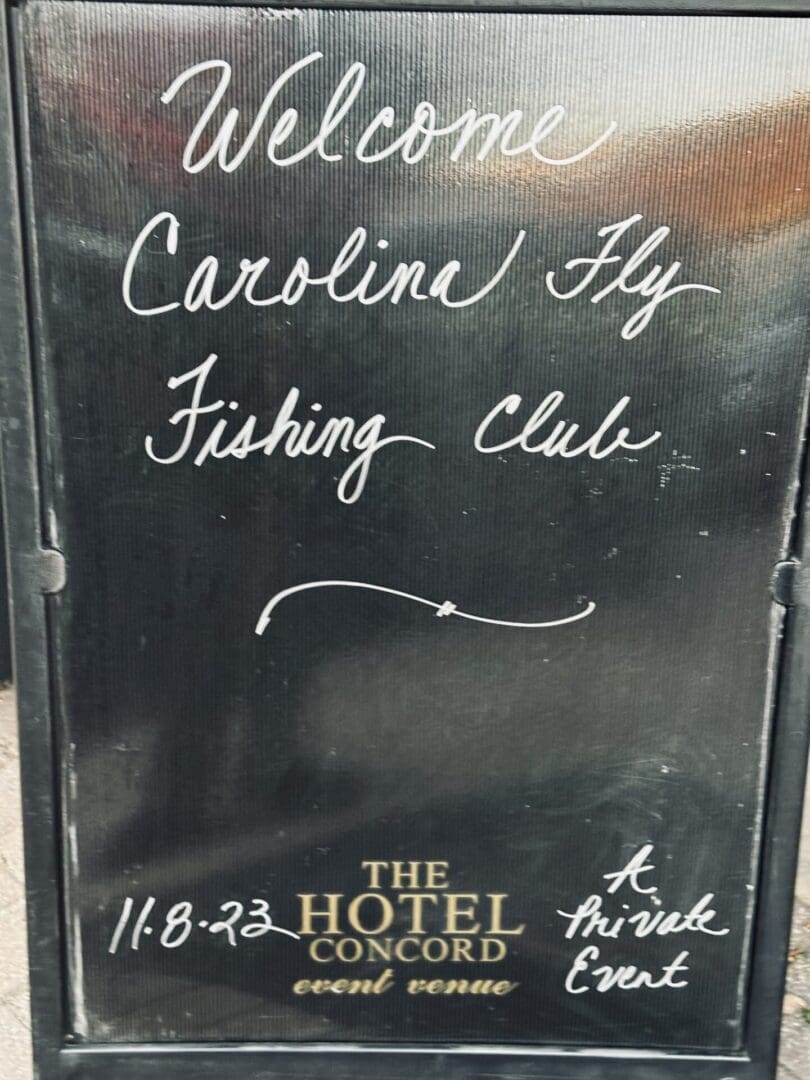 Welcome
Carolina Fly
Fishing Club
11.8.23
THE
HOTEL
CONCORD
event venue
A
Private
Event